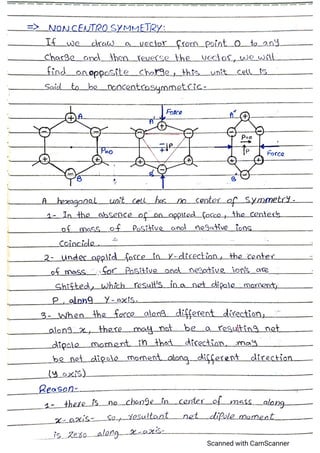 => NONCENTROSYMMETRY:
If we draw a vector from point O to any
charge and then reverse the vector, we will
find an opposite charge, this unit cell is
said to be noncentrosymmetric.
A
P=0
B
Force
A'
P
B'
A"
P=0
P
Force
B"
A hexagonal unit cell has no center of symmetry.
1- In the absence of an applied force, the centers
of mass of Positive and negative ions
Coincide.
2- Under applid force in Y-direction, the center
of mass for Positive and negative ions are
Shifted, which result's in a net dipole moment,
P, along Y-axis.
3- When the force along different direction,
along x, there may not be a resulting net
dipole moment in that direction, may
be net dipole moment along different direction
(y axis)
Reason-
1- there is no change in center of mass along
x-axis- so, resultant net dipole moment
is zero along x-axis-
Scanned with CamScanner